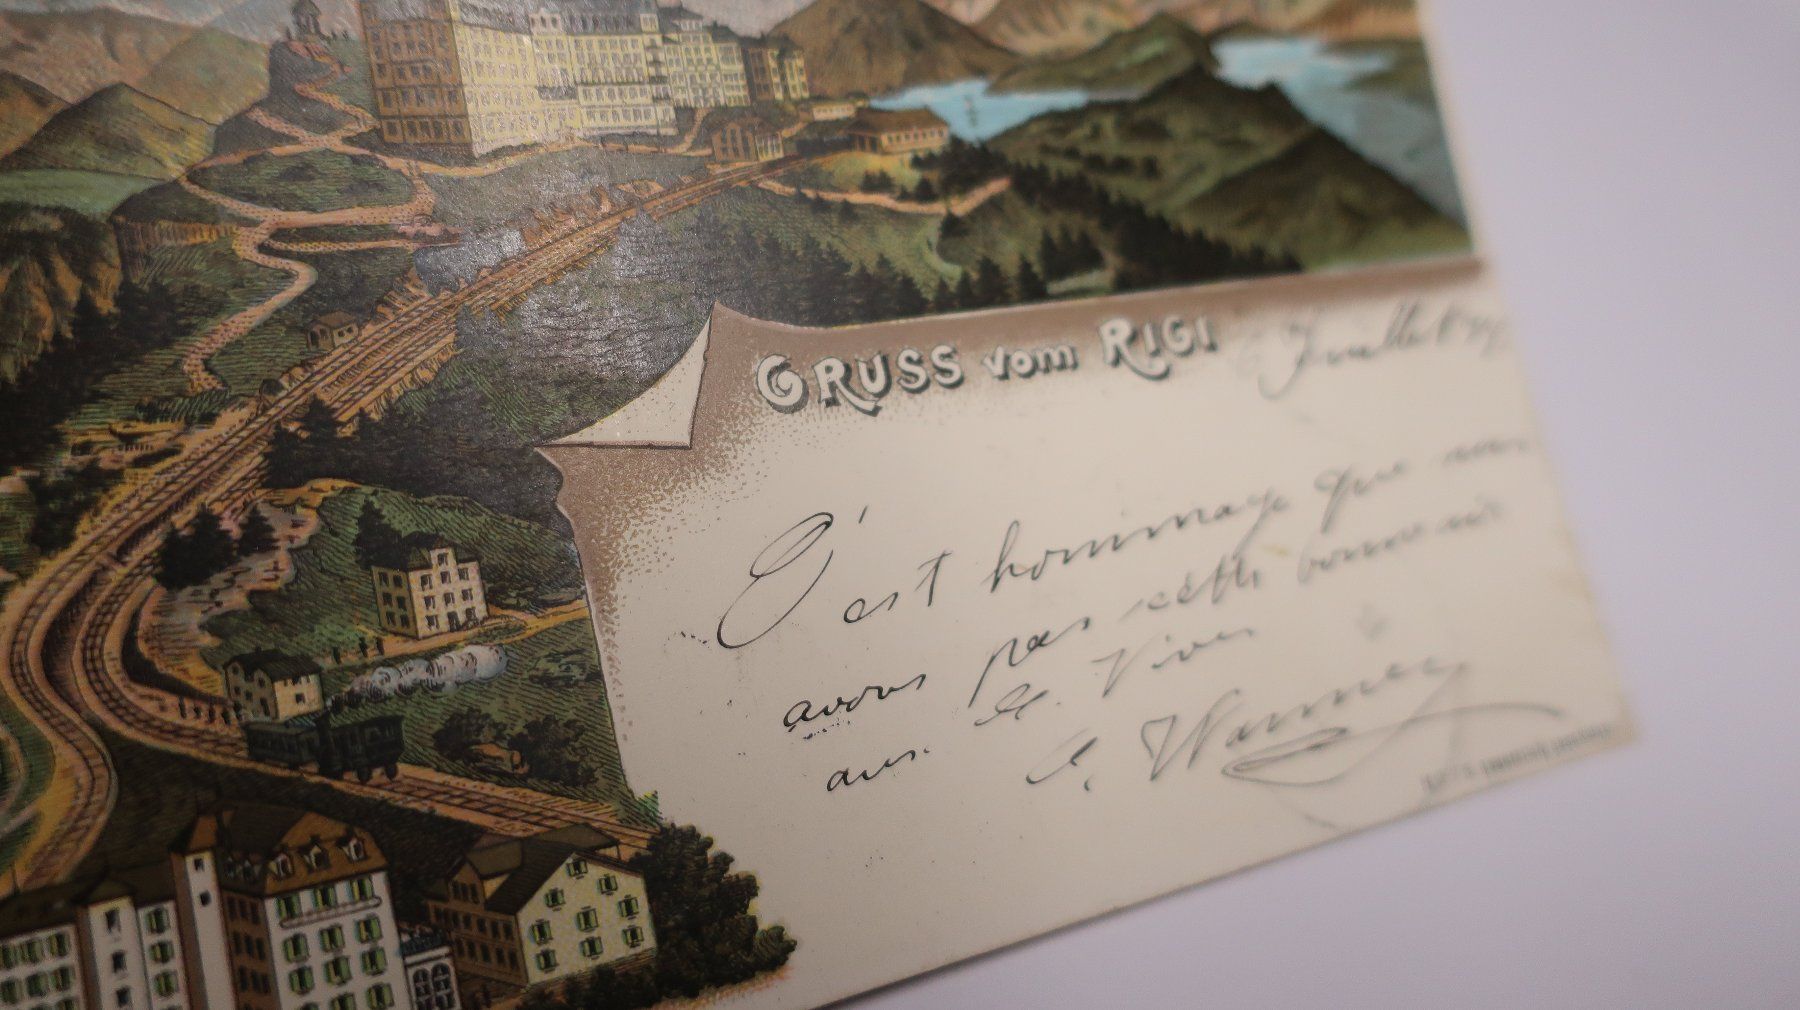 GRUSS vom RIGI
Juillet
C'est hommage que nous
avons pas cette
ans. et. Vives
A. Warnery